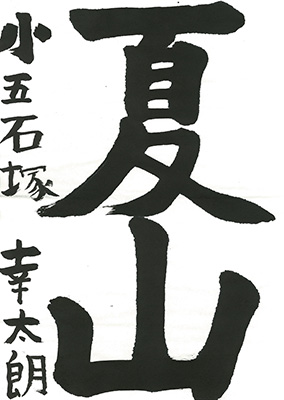 夏山
小五石塚幸太朗